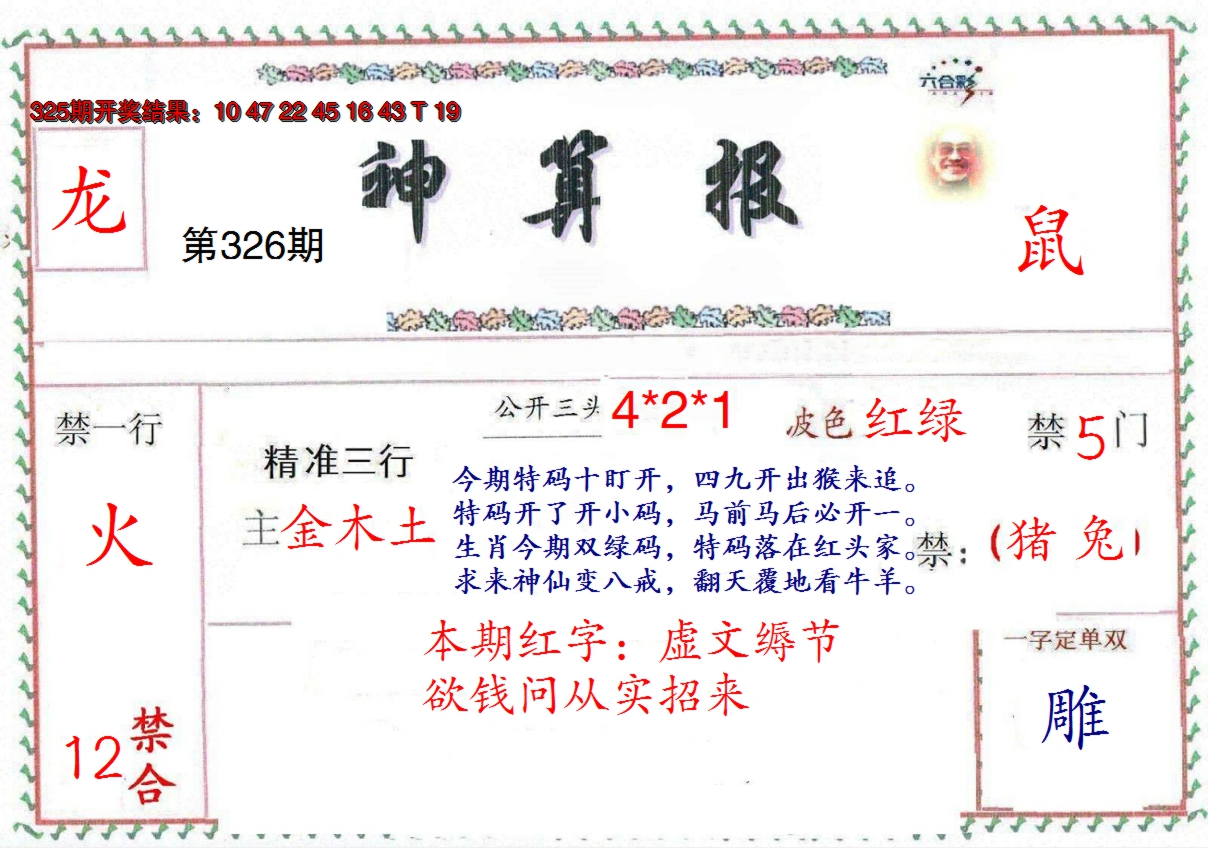 六合彩
325期开奖结果：10 47 22 45 16 43 T 19
神算报
龙
第326期
鼠
禁一行
火
12禁合
精准三行
主金木土
公开三头 4*2*1
波色 红绿
禁5门
今期特码十盯开，四九开出猴来追。
特码开了开小码，马前马后必开一。
生肖今期双绿码，特码落在红头家。
求来神仙变八戒，翻天覆地看牛羊。
禁：（猪 兔）
本期红字：虚文缛节
欲钱问从实招来
一字定单双
雕